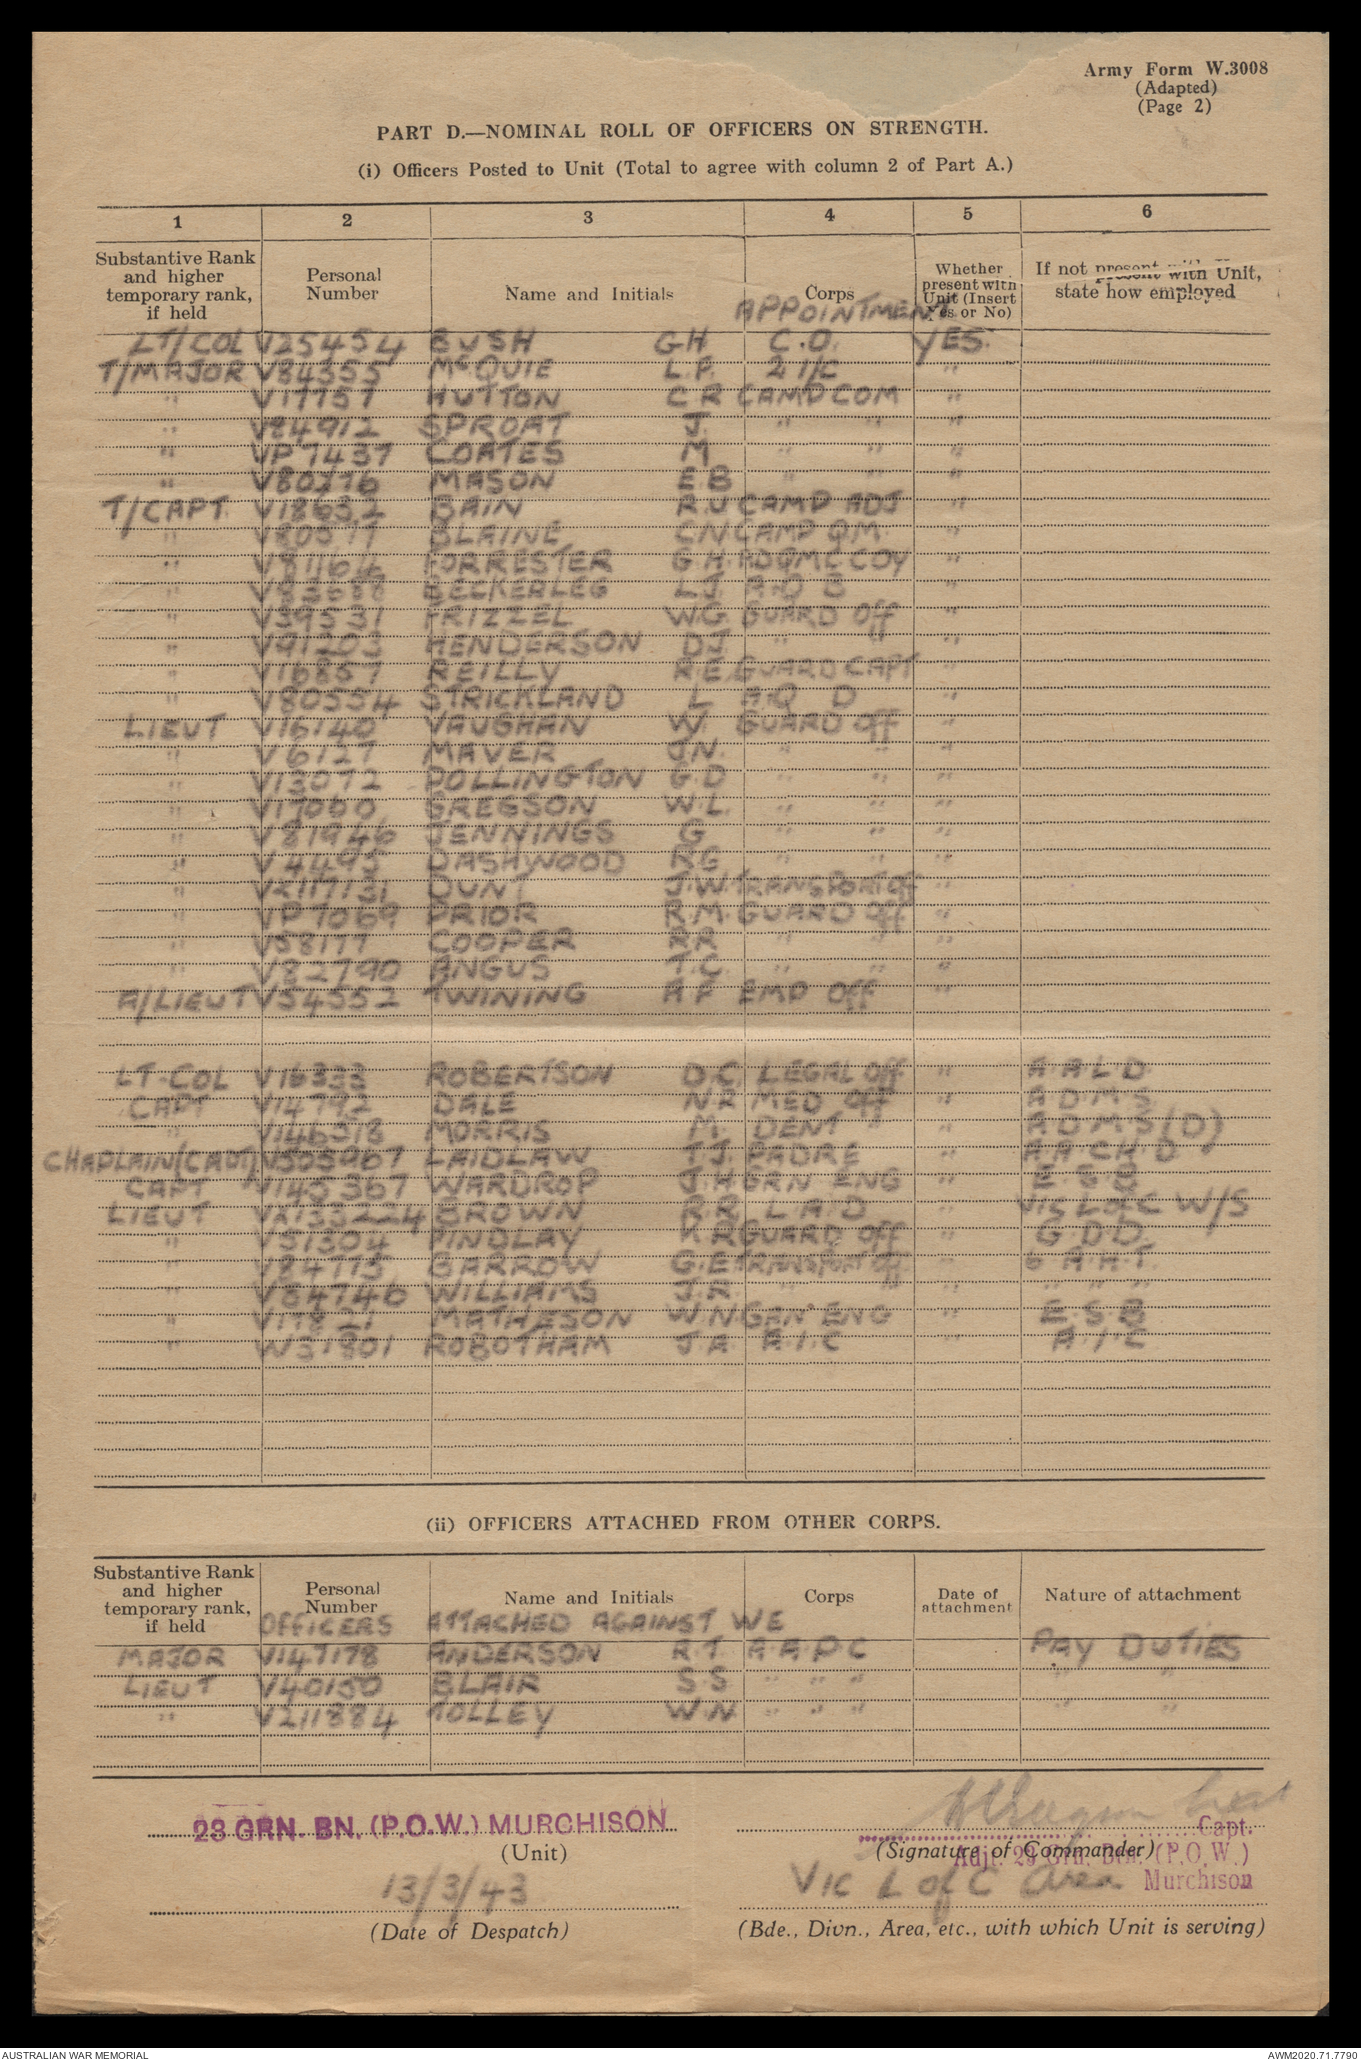 Army Form W.3008
(Adapted)
(Page 2)
PART D.—NOMINAL ROLL OF OFFICERS ON STRENGTH.
(i) Officers Posted to Unit (Total to agree with column 2 of Part A.)
1 2 3 4 5 6
Substantive Rank and higher temporary rank, if held Personal Number Name and Initials Corps Whether present with Unit (Insert Yes or No) If not present with Unit, state how employed
APPOINTMENT
LT/COL V25454 BUSH GH C.O. YES
T/MAJOR V84355 McQUIE L.P. 2 I/C "
" V17757 HUTTON C R CAMP COM "
" V84912 SPROAT J. " " "
" VP7437 COATES M " " "
" V80776 MASON E B " " "
T/CAPT V18632 BAIN R.U CAMP ADJ "
" V80577 BLAINE C.N CAMP QM "
" V81164 FORRESTER G.H. "
" BECKERLEG L.J. "
" V39531 FRIZZEL W.G GUARD Off "
" V91203 HENDERSON DJ " " "
" V16857 REILLY R.E. GUARD CAPT "
" V80554 STRICKLAND L "
LIEUT V15140 VAUGHAN W. GUARD Off "
" V6127 MAVER J.N. " " "
" V13072 POLLINGTON G D " " "
" V17060 GREGSON W.L. " " "
" V81946 JENNINGS G " " "
" V4495 DASHWOOD R.G " " "
" V217131 DUNT J.W. TRANSPORT Off "
" VP7069 PRIOR R.M. GUARD Off "
" V58177 COOPER R R " " "
" V82790 ANGUS T.C. " " "
A/LIEUT V54552 TWINING A F EMP Off "
LT-COL V16333 ROBERTSON D.C. LEGAL Off " A A L D
CAPT V14792 DALE N.R MED Off " A D M S
" V146318 MORRIS M. DENT " " A D M S (D)
CHAPLAIN(CAPT) V505907 LAIDLAW T.J. PADRE " A A CH D
CAPT V145367 WARDROP J.H GRN ENG " E.S.B
LIEUT VX133224 BROWN R.R. L.A.D " VIC L of C W/S
" V51304 FINDLAY K R GUARD Off " G.D.D.
" V84775 BARROW G.E TRANSPORT Off " 6 A.A.T.
" V64746 WILLIAMS J.R. " " " " " "
" V17821 MATHESON W.N GRN ENG " E.S.B
" W31801 ROBOTHAM J.A. A.I.C " A.I.C
(ii) OFFICERS ATTACHED FROM OTHER CORPS.
Substantive Rank and higher temporary rank, if held Personal Number Name and Initials Corps Date of attachment Nature of attachment
OFFICERS ATTACHED AGAINST WE
MAJOR V147178 ANDERSON R.T. A.A.P.C PAY DUTIES
LIEUT V40150 BLAIR S.S " " " " "
" V211884 TOLLEY W.N. " " " " "
23 GRN. BN. (P.O.W.) MURCHISON
Capt.
(Unit) (Signature of Commander)
Adjt. 23 Grn. Bn. (P.O.W.)
Murchison
13/3/43 VIC L of C Area
(Date of Despatch) (Bde., Divn., Area, etc., with which Unit is serving)
AUSTRALIAN WAR MEMORIAL AWM2020.71.7790